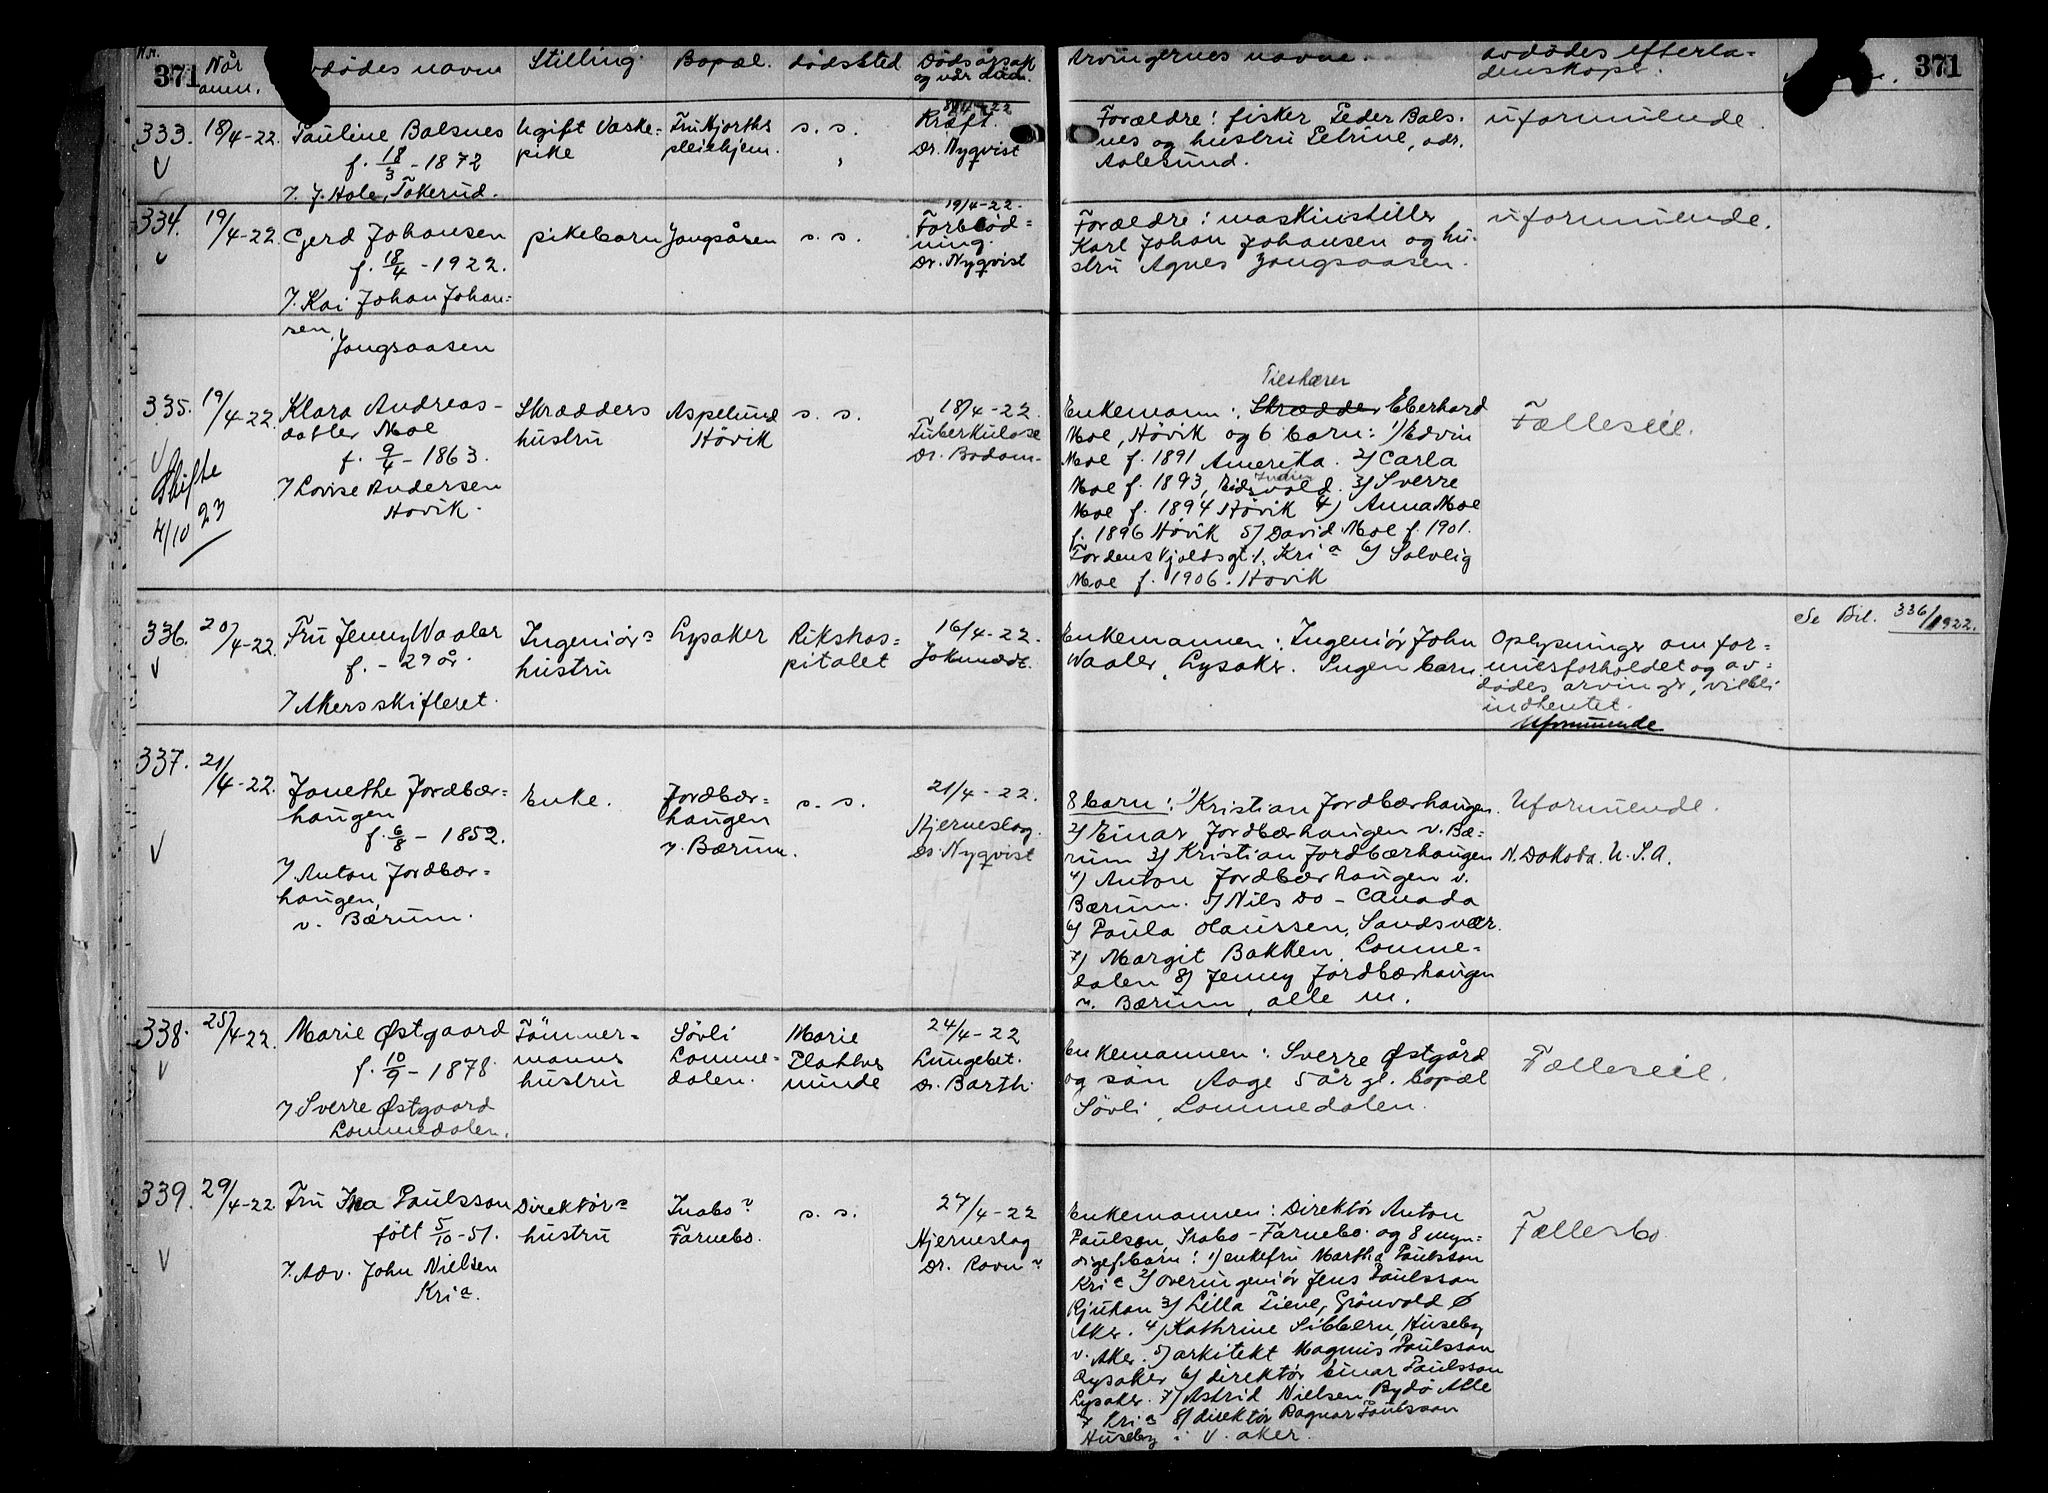 N.r.
371 Når anm.
dødes navn
Stilling.
Bopæl.
dødssted
Dødsårsak
og når død.
Arvingernes navne.
avdødes efterla-
denskaper.
371
333. 18/4-22.
Pauline Balsnes
f. 18/3 - 1872
v/ J. Hole, Tokerud.
Ugift Vaske-
pike
Fru Hjorths
pleiehjem.
s. s.
8/4-22
Kræft.
Dr. Nyqvist
Forældre: fisker Peder Bals-
nes og hustru Petrine, adr.
Aalesund.
uformuende
334. 19/4-22.
Gjerd Johansen
f. 18/4 - 1922.
v/ Kai Johan Johan-
sen,
Jongsaasen
pikebarn
Jongsåsen
s. s.
19/4-22.
Forblød-
ning.
Dr. Nyqvist
Forældre: maskinstiller
Karl Johan Johansen og hu-
stru Agnes Jongsaasen.
uformuende.
335. 19/4-22.
Skifte
4/10 23
Klara Andreas-
datter Moe
f. 9/4 - 1863.
v/ Lovise Andersen
Høvik.
Skrædders
hustru
Aspelund
Høvik
s. s.
18/4-22.
Tuberkulose
Dr. Bodom
Enkemann: Skrædder Eberhard
Moe, Høvik og 6 barn: 1/ Edvin
Moe f. 1891 Amerika. 2/ Carla
Moe f. 1893, Eidsvold. 3/ Sverre
Moe f. 1894 Høvik 4/ Anna Moe
f. 1896 Høvik 5/ David Moe f. 1901.
Tordenskjoldsgt. 1. Kria 6/ Solveig
Moe f. 1906. Høvik
Fælleseie.
336. 20/4-22.
Fru Jenny Waaler
f. - 29 år.
v/ Akers skifteret.
Ingeniør-
hustru
Lysaker
Rikshos-
pitalet
16/4-22.
Enkemannen: Ingeniør John
Waaler, Lysaker. Ingen barn.
Oplysninger om for-
muesforholdet og av-
dødes arvinger, vil bli
indhentet.
Uformuende
Se Bil. 336/1922.
337. 21/4-22.
Janethe Jordbær-
haugen
f. 6/8 - 1852.
v/ Anton Jordbær-
haugen,
v. Bærum.
Enke.
Jordbær-
haugen
v. Bærum.
s. s.
21/4-22.
Hjerneslag.
Dr. Nyqvist
8 barn: 1/ Kristian Jordbærhaugen.
2/ Einar Jordbærhaugen v. Bæ-
rum 3/ Kristian Jordbærhaugen
4/ Anton Jordbærhaugen v.
Bærum. 5/ Nils do - Canada
6/ Paula Olaussen, Sandsvær.
7/ Margit Bakken, Lomme-
dalen 8/ Jenny Jordbærhaugen
v. Bærum, alle m.
Uformuende.
N. Dakota. U. S. A.
338. 25/4-22.
Marie Østgaard
f. 10/9 - 1878.
v/ Sverre Østgaard
Lommedalen.
Tømmer-
manns
hustru
Søvli
Lomme-
dalen.
Marie
Plathes
minde
24/4-22
Lungebet.
Dr. Barth.
Enkemannen: Sverre Østgård
og søn Aage 5 år gl. bopæl
Søvli, Lommedalen.
Fælleseie.
339. 29/4-22
Fru Ina Paulsson
født 5/10 - 51.
v/ Adv. John Nielsen
Kria.
Direktør-
hustru
Farnebo.
s. s.
27/4-22
Hjerneslag
Dr. Ravn
Enkemannen: Direktør Anton
Paulson, Snabo-Farnebo. og 8 myn-
dige barn: 1/ enkefru Martha Paulsson
Kria 2/ overingeniør Jens Paulsson
Rjukan 3/ Lilla Tiene, Grönvold Ø
Aker. 4/ Kathrine Sibbern, Huseby
v. Aker. 5/ arkitekt Magnus Paulsson
Lysaker 6/ direktør Einar Paulsson
Lysaker. 7/ Astrid Nielsen Bygdø Alle
7 Kria 8/ direktør Ragnar Paulsson
Huseby i v. aker.
Fællesbo